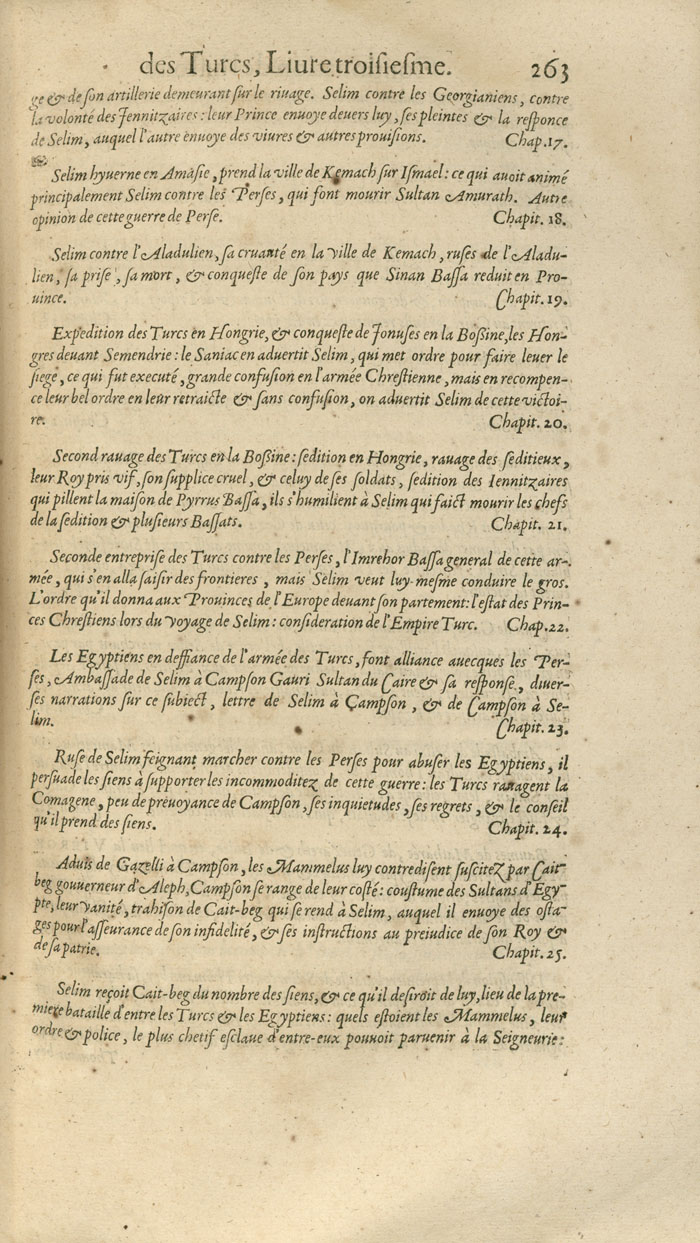 des Turcs, Liure troisiesme. 263
ge & de son artillerie demeurant sur le riuage. Selim contre les Georgianiens, contre
la volonté des Jennitzaires : leur Prince enuoye deuers luy, ses pleintes & la responce
de Selim, auquel l'autre enuoye des viures & autres prouisions. Chap.17.
Selim hyuerne en Amasie, prend la ville de Kemach sur Ismael : ce qui auoit animé
principalement Selim contre les Perses, qui font mourir Sultan Amurath. Autre
opinion de cette guerre de Perse. Chapit. 18.
Selim contre l'Aladulien, sa cruauté en la ville de Kemach, ruses de l'Aladu-
lien, sa prise, sa mort, & conqueste de son pays que Sinan Bassa reduit en Pro-
uince. Chapit. 19.
Expedition des Turcs en Hongrie, & conqueste de Jonuses en la Boßine, les Hon-
gres deuant Semendrie : le Saniac en aduertit Selim, qui met ordre pour faire leuer le
siege, ce qui fut executé, grande confusion en l'armée Chrestienne, mais en recompen-
ce leur bel ordre en leur retraicte & sans confusion, on aduertit Selim de cette victoi-
re. Chapit. 20.
Second rauage des Turcs en la Boßine : sedition en Hongrie, rauage des seditieux,
leur Roy pris vif, son supplice cruel, & celuy de ses soldats, sedition des Iennitzaires
qui pillent la maison de Pyrrus Bassa, ils s'humilient à Selim qui faict mourir les chefs
de la sedition & plusieurs Bassats. Chapit. 21.
Seconde entreprise des Turcs contre les Perses, l'Imrehor Bassa general de cette ar-
mée, qui s'en alla saisir des frontieres, mais Selim veut luy-mesme conduire le gros.
L'ordre qu'il donna aux Prouinces de l'Europe deuant son partement : l'estat des Prin-
ces Chrestiens lors du voyage de Selim : consideration de l'Empire Turc. Chap.22.
Les Egyptiens en deffiance de l'armée des Turcs, font alliance auecques les Per-
ses, Ambassade de Selim à Campson Gauri Sultan du Caire & sa response, diuer-
ses narrations sur ce subiect, lettre de Selim à Campson, & de Campson à Se-
lim. Chapit. 23.
Ruse de Selim feignant marcher contre les Perses pour abuser les Egyptiens, il
persuade les siens à supporter les incommoditez de cette guerre : les Turcs rauagent la
Comagene, peu de preuoyance de Campson, ses inquietudes, ses regrets, & le conseil
qu'il prend des siens. Chapit. 24.
Aduis de Gazelli à Campson, les Mammelus luy contredisent suscitez par Cait-
beg gouuerneur d'Aleph, Campson se range de leur costé : coustume des Sultans d'Egy-
pte, leur vanité, trahison de Cait-beg qui se rend à Selim, auquel il enuoye des osta-
ges pour l'asseurance de son infidelité, & ses instructions au preiudice de son Roy &
de sa patrie. Chapit. 25.
Selim reçoit Cait-beg du nombre des siens, & ce qu'il desiroit de luy, lieu de la pre-
miere bataille d'entre les Turcs & les Egyptiens : quels estoient les Mammelus, leur
ordre & police, le plus chetif esclaue d'entre-eux pouuoit paruenir à la Seigneurie :